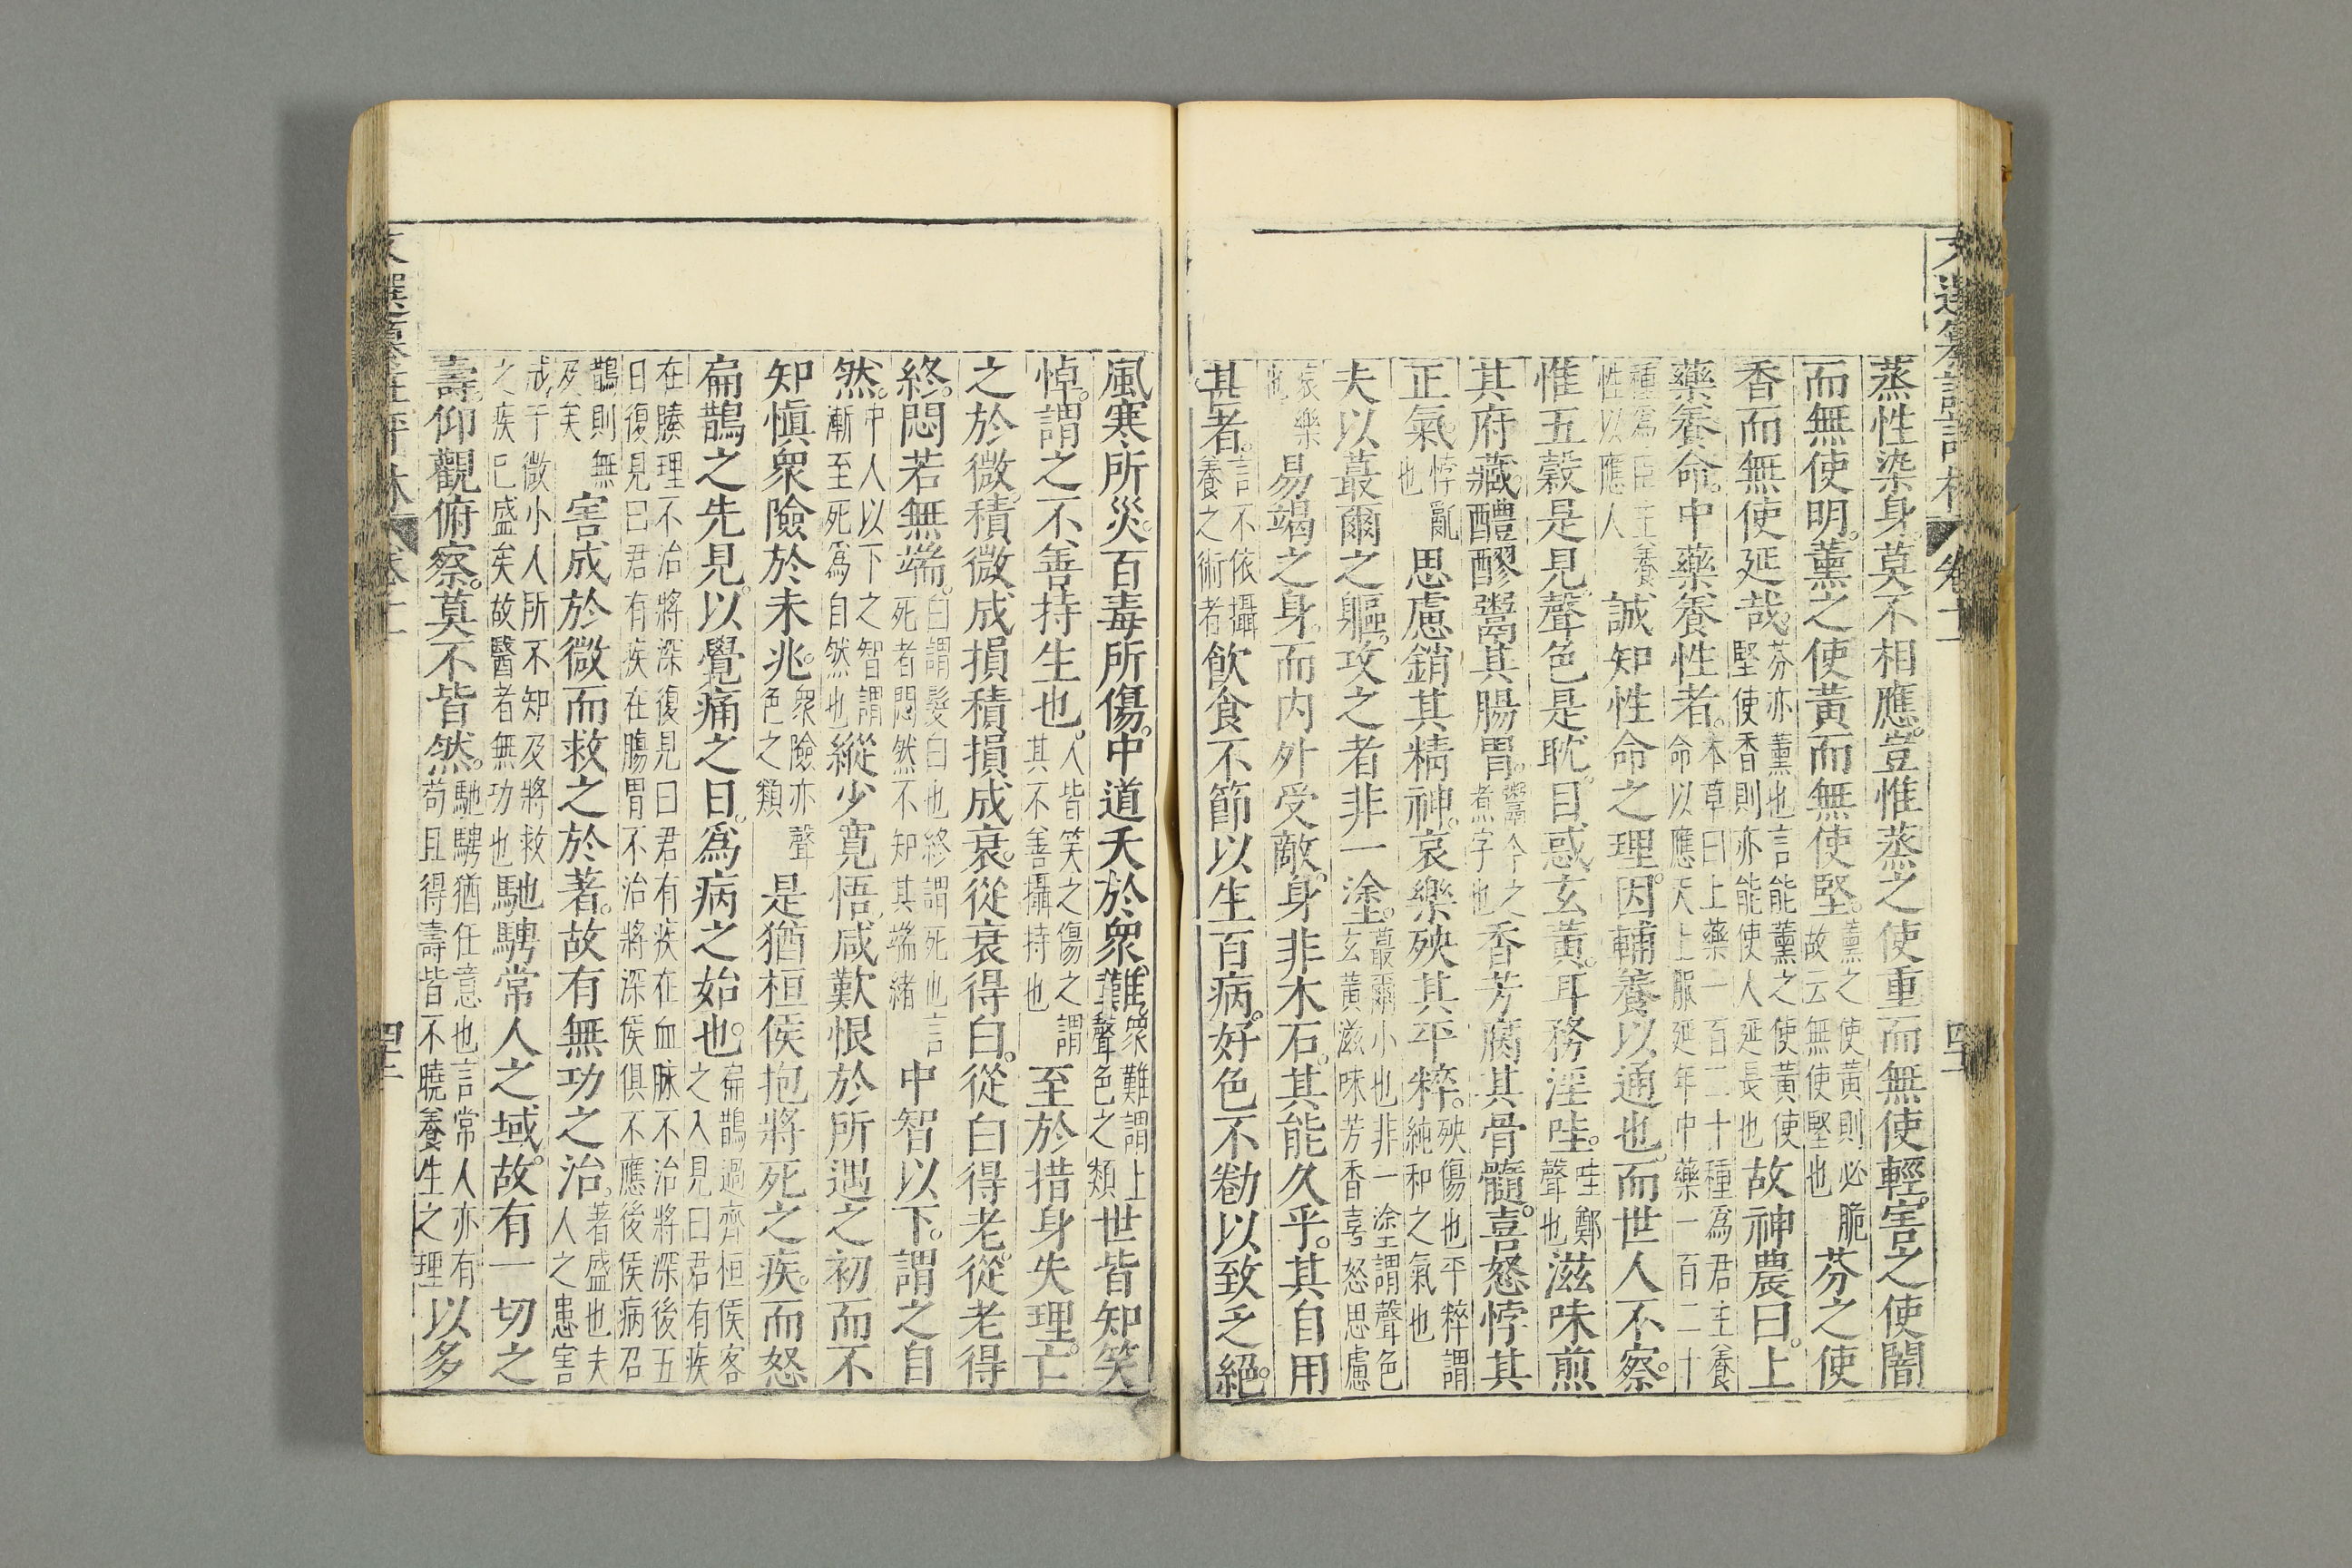 蒸性染身莫不相應。豈惟蒸之使重而無使輕。害之使闇
而無使明。薰之使黃而無使堅。薰之使黃則必脆故云無使堅也芬之使
香而無使延哉。芬亦薰也言能薰之使黃使堅使香則亦能使人延長也故神農曰。上
藥養命。中藥養性者。本草曰上藥一百二十種爲君主養命以應天上服延年中藥一百二十
種爲臣主養性以應人誠知性命之理。因輔養以通也。而世人不察。
惟五穀是見。聲色是耽。目惑玄黃。耳務淫哇。哇鄭聲也滋味煎
其府藏。醴醪鬻其腸胃。鬻今之煮字也香芳腐其骨髓。喜怒悖其
正氣。悖亂也思慮銷其精神。哀樂殃其平粹。殃傷也平粹謂純和之氣也
夫以蕞爾之軀。攻之者非一塗。蕞爾小也非一塗謂聲色玄黃滋味芳香喜怒思慮
哀樂也易竭之身。而內外受敵。身非木石。其能久乎。其自用
甚者。言不依攝養之術者飲食不節以生百病。好色不勌以致乏絕。
風寒所災。百毒所傷。中道夭於衆難。衆難謂上聲色之類世皆知笑
悼。謂之不善持生也。人皆笑之傷之謂其不善攝持也至於措身失理。亡
之於微。積微成損積損成衰。從衰得白。從白得老。從老得
終。悶若無端。白謂髮白也終謂死也言死者悶然不知其端緒中智以下。謂之自
然。中人以下之智謂漸至死爲自然也縱少寤悟。咸歎恨於所遇之初而不
知愼衆險於未兆。衆險亦聲色之類是猶桓侯抱將死之疾。而怒
扁鵲之先見。以覺痛之日。爲病之始也。扁鵲過齊桓侯客之入見曰君有疾
在腠理不治將深復見曰君有疾在血脉不治將深後五日復見曰君有疾在腸胃不治將深侯俱不應後侯病召
鵲則無及矣害成於微而救之於著。故有無功之治。著盛也夫人之患害
成于微小人所不知及將救之疾已盛矣故醫者無功也馳騁常人之域。故有一切之
壽。仰觀俯察。莫不皆然。馳騁猶任意也言常人亦有苟且得壽皆不曉養生之理以多